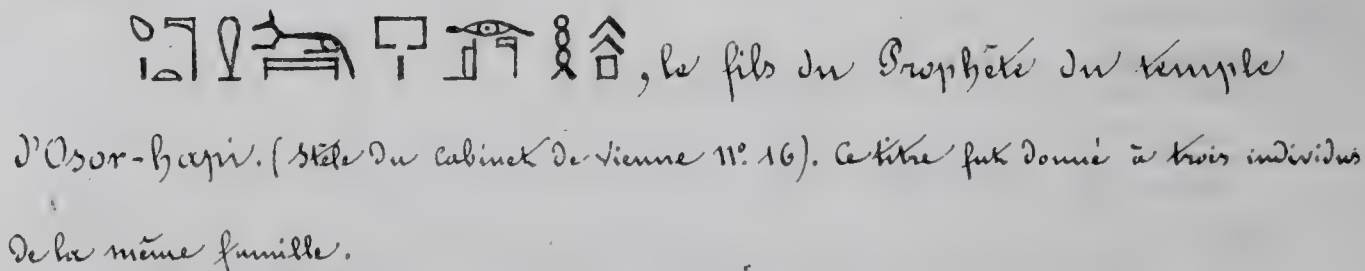 , le fils du Prophète du temple
d'Osor-hapi. (Stèle du cabinet de Vienne nº. 16). Ce titre fut donné à trois individus
de la même famille.